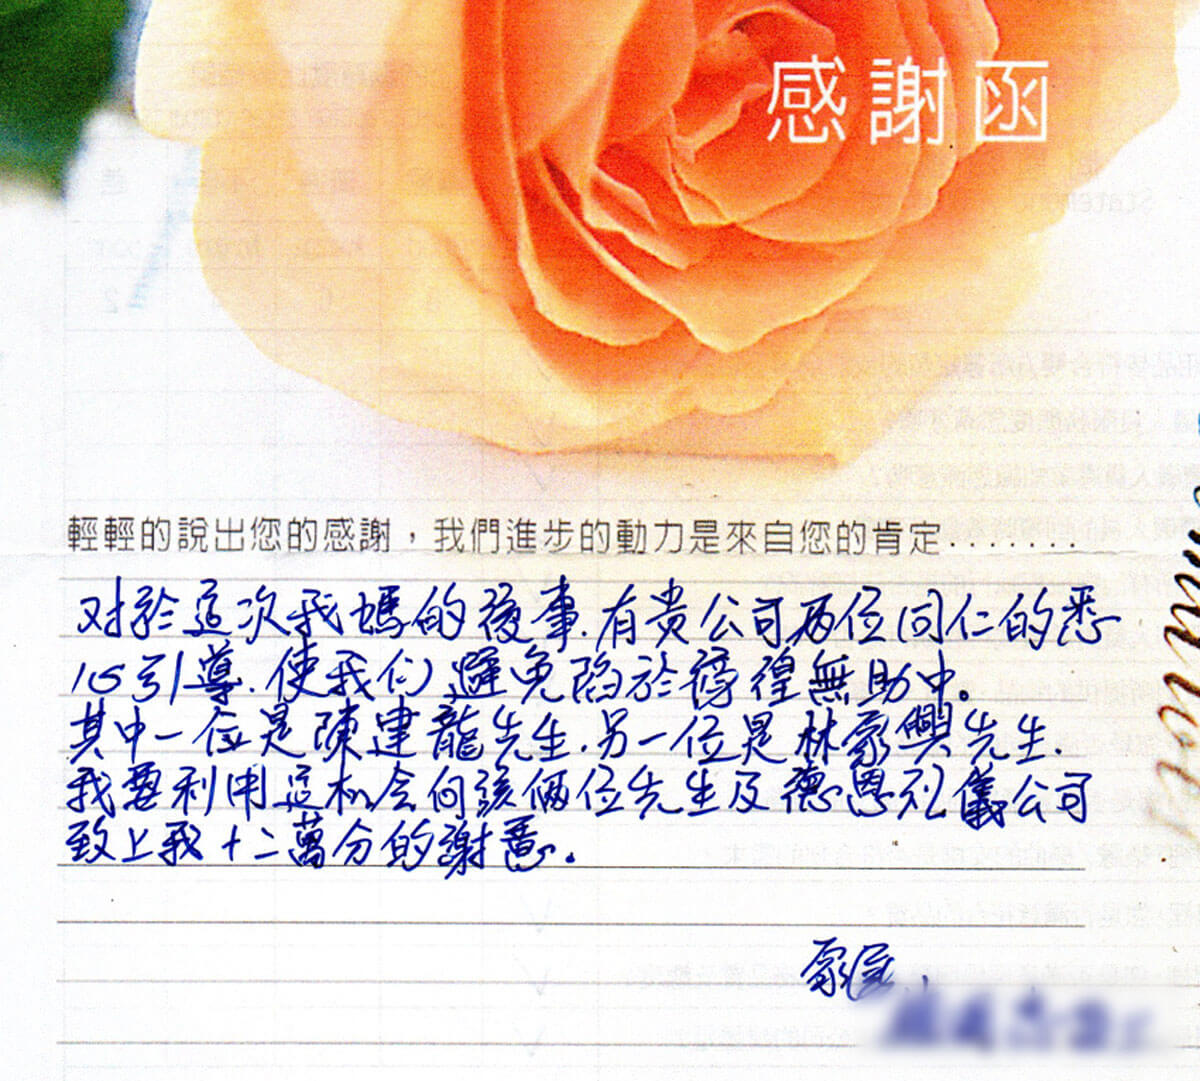 感謝函
輕輕的說出您的感謝，我們進步的動力是來自您的肯定.......
对於這次我媽的後事.有貴公司两位同仁的悉
心引導.使我们避免陷於徬徨無助中。
其中一位是陳建龍先生.另一位是林家興先生.
我要利用這机会向該倆位先生及德恩礼儀公司
致上我十二萬分的謝意.
家屬